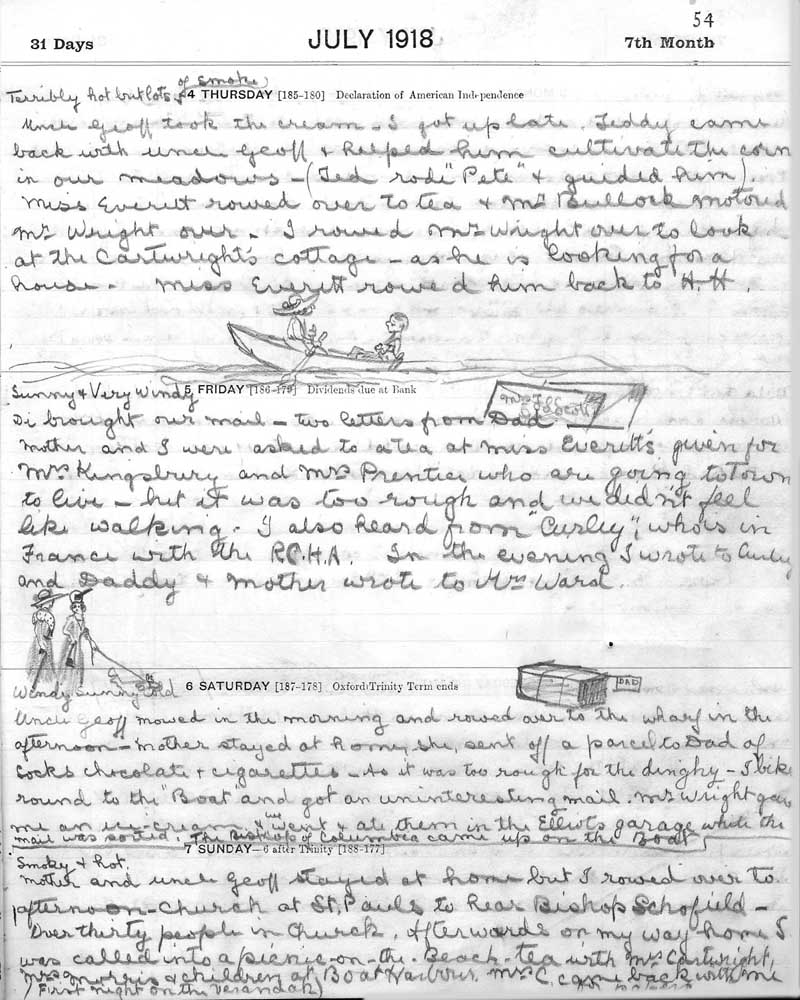 54
31 Days JULY 1918 7th Month
of smoke)
Terribly hot but lots 4 THURSDAY [185-180] Declaration of American Independence
Uncle Geoff took the cream - I got up late. Teddy came
back with uncle Geoff & helped him cultivate the corn
in our meadows - (Ted rode "Pete" & guided him).
Miss Everett rowed over to tea & Mr Bullock motored
Mr Wright over. I rowed Mr Wright over to look
at the Cartwright's cottage - as he is looking for a
house. Miss Everett rowed him back to H.H.
Sunny & Very Windy 5 FRIDAY [186-179] Dividends due at Bank
Di brought our mail - two letters from Dad.
Mother and I were asked to a tea at Miss Everett's given for
Mrs Kingsbury and Mrs Prentice who are going to Town
to live - but it was too rough and we didn't feel
like walking. I also heard from "Curley", who is in
France with the R.C.H.A. In the evening I wrote to Curley
and Daddy & Mother wrote to Mrs Ward.
DAD
Windy Sunny 6 SATURDAY [187-178] Oxford Trinity Term ends
Uncle Geoff mowed in the morning and rowed over to the wharf in the
afternoon - Mother stayed at home, she, sent off a parcel to Dad of
socks chocolate & cigarettes - As it was too rough for the dinghy - I bike
round to the "Boat and got an uninteresting mail. Mr Wright gave
me an ice-cream & we went & ate them in the Elliots garage while the
mail was sorted. The Bishop of Columbia came up on the Boat,
7 SUNDAY-6 after Trinity [188-177]
Smoky & hot.
Mother and uncle Geoff stayed at home but I rowed over to
afternoon-Church at St. Pauls to hear Bishop Schofield -
Over thirty people in Church. Afterwards on my way home I
was called into a picnic-on-the-Beach-tea with Mrs Cartwright,
Mrs Morris & children at Boat Harbour. Mrs C. came back with me
(First night on the verandah) to